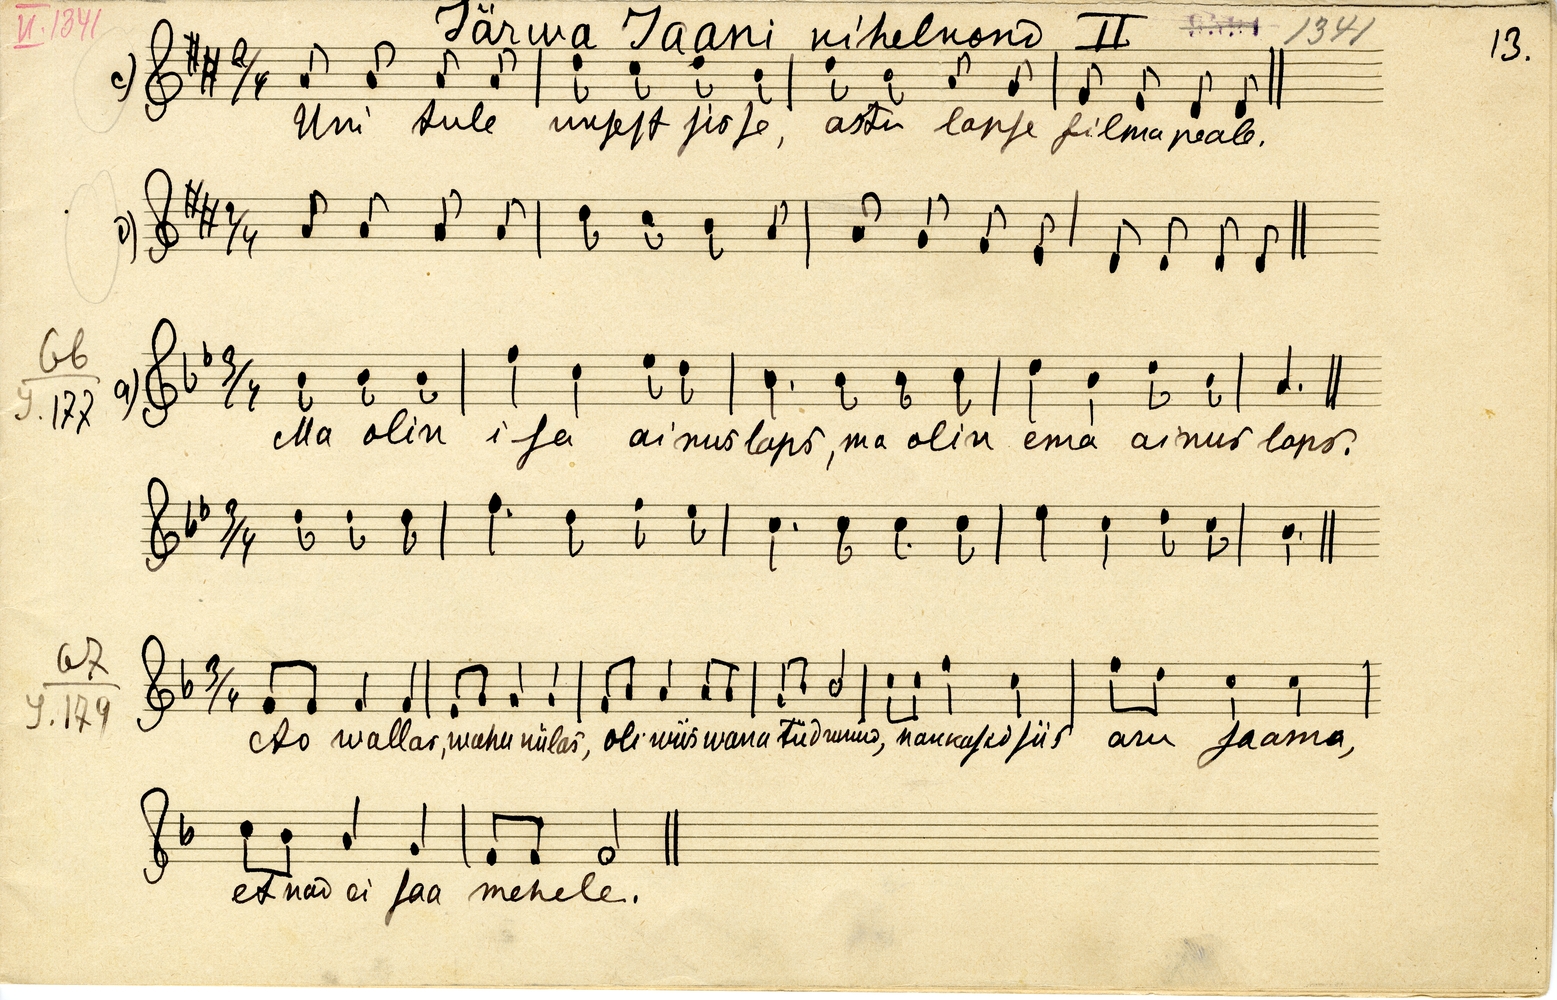 II. 1341
Järwa Jaani kihelkond II 1341
13.
c) 2/4
Uni tule uksest sisse, astu lapse silma peale.
d) 2/4
66
J. 177
a) 3/4
Ma olin isa ainus laps, ma olin ema ainus laps.
3/4
67
J. 179
3/4
Ao wallas, wahu külas, oli wiis wana tüdrukud, hakkasid siis aru saama,
et nad ei saa mehele.